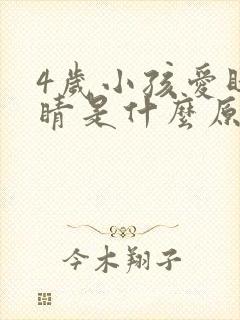 4歲小孩愛
睛是什麼原
今木翔子